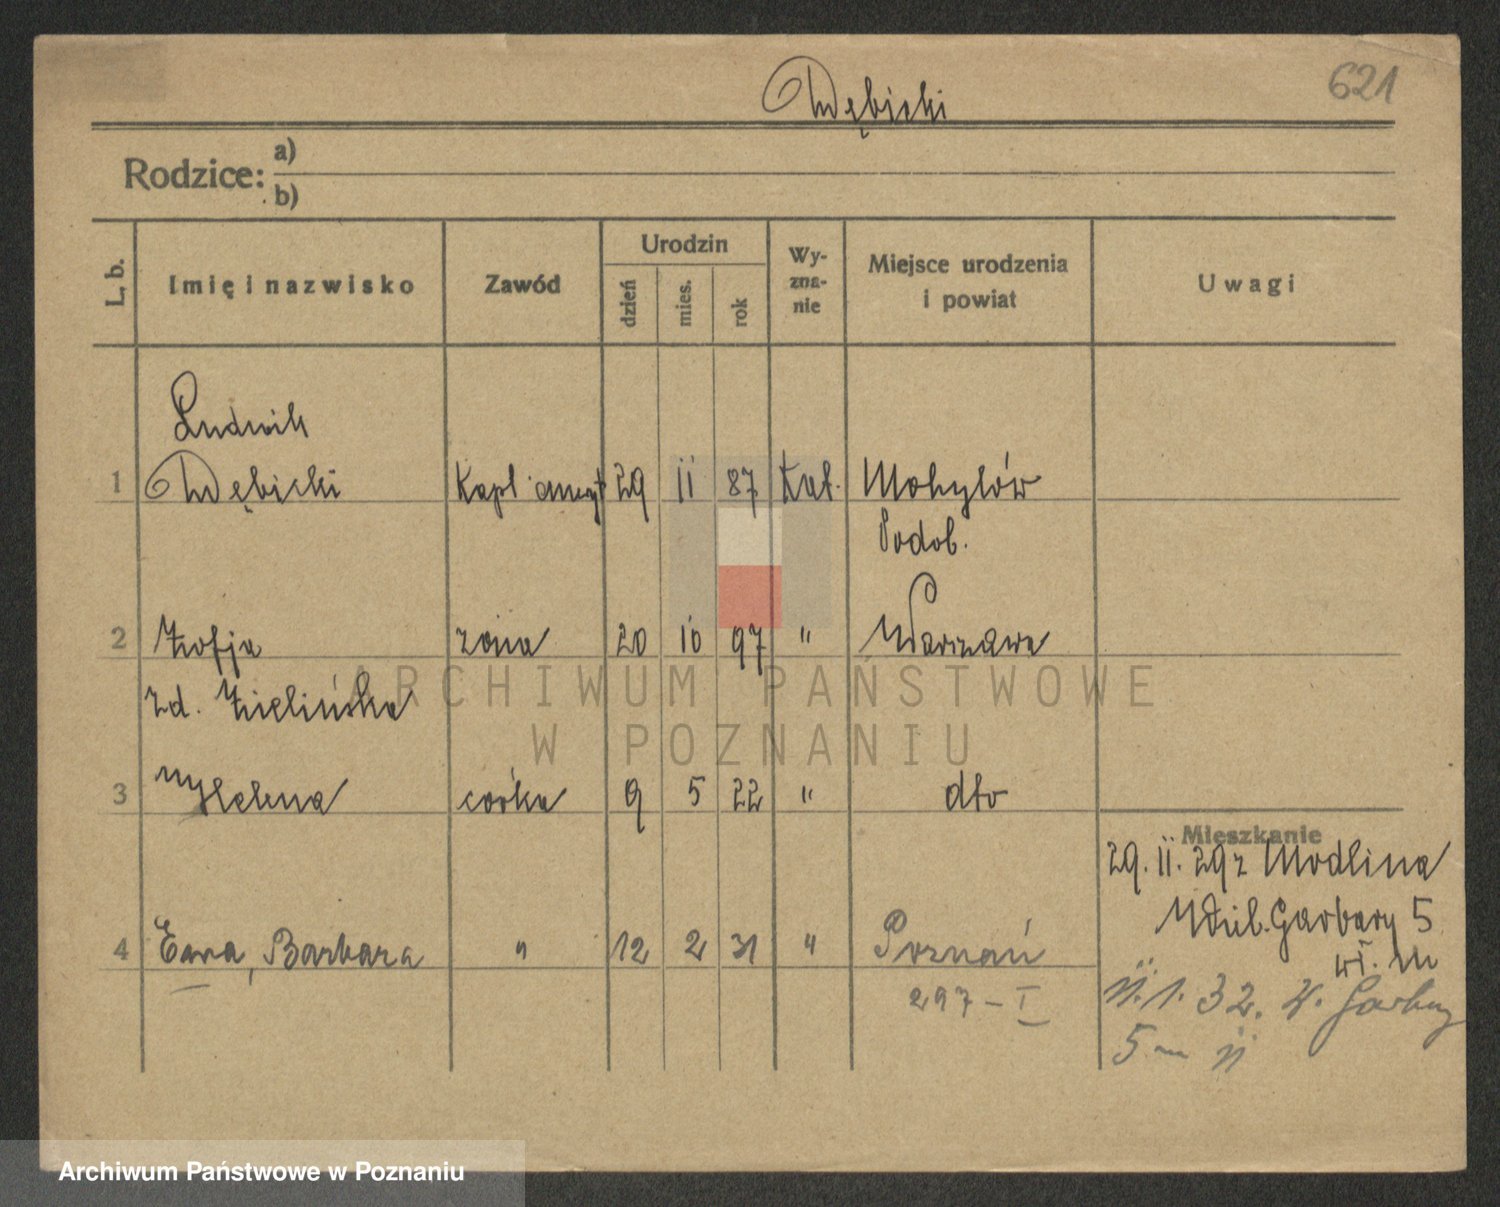 621
Dębicki
Rodzice: a)
b)
L. b. Imię i nazwisko Zawód Urodzin dzień mies. rok Wy-zna-nie Miejsce urodzenia i powiat Uwagi
Ludwik
1 Dębicki Kapł 29 II 87 Kat. Mohylów
Podob.
2 Zofja żona 20 10 97 " Warszawa
zd. Zielińska
3 Helena córka 9 5 22 " dto
Mieszkanie
29. II. 29 z Modlina
Garbary 5
4 Ewa, Barbara " 12 2 31 " Poznań
297 - I
1. 32. Garbary
5
ARCHIWUM PAŃSTWOWE
W POZNANIU
Archiwum Państwowe w Poznaniu